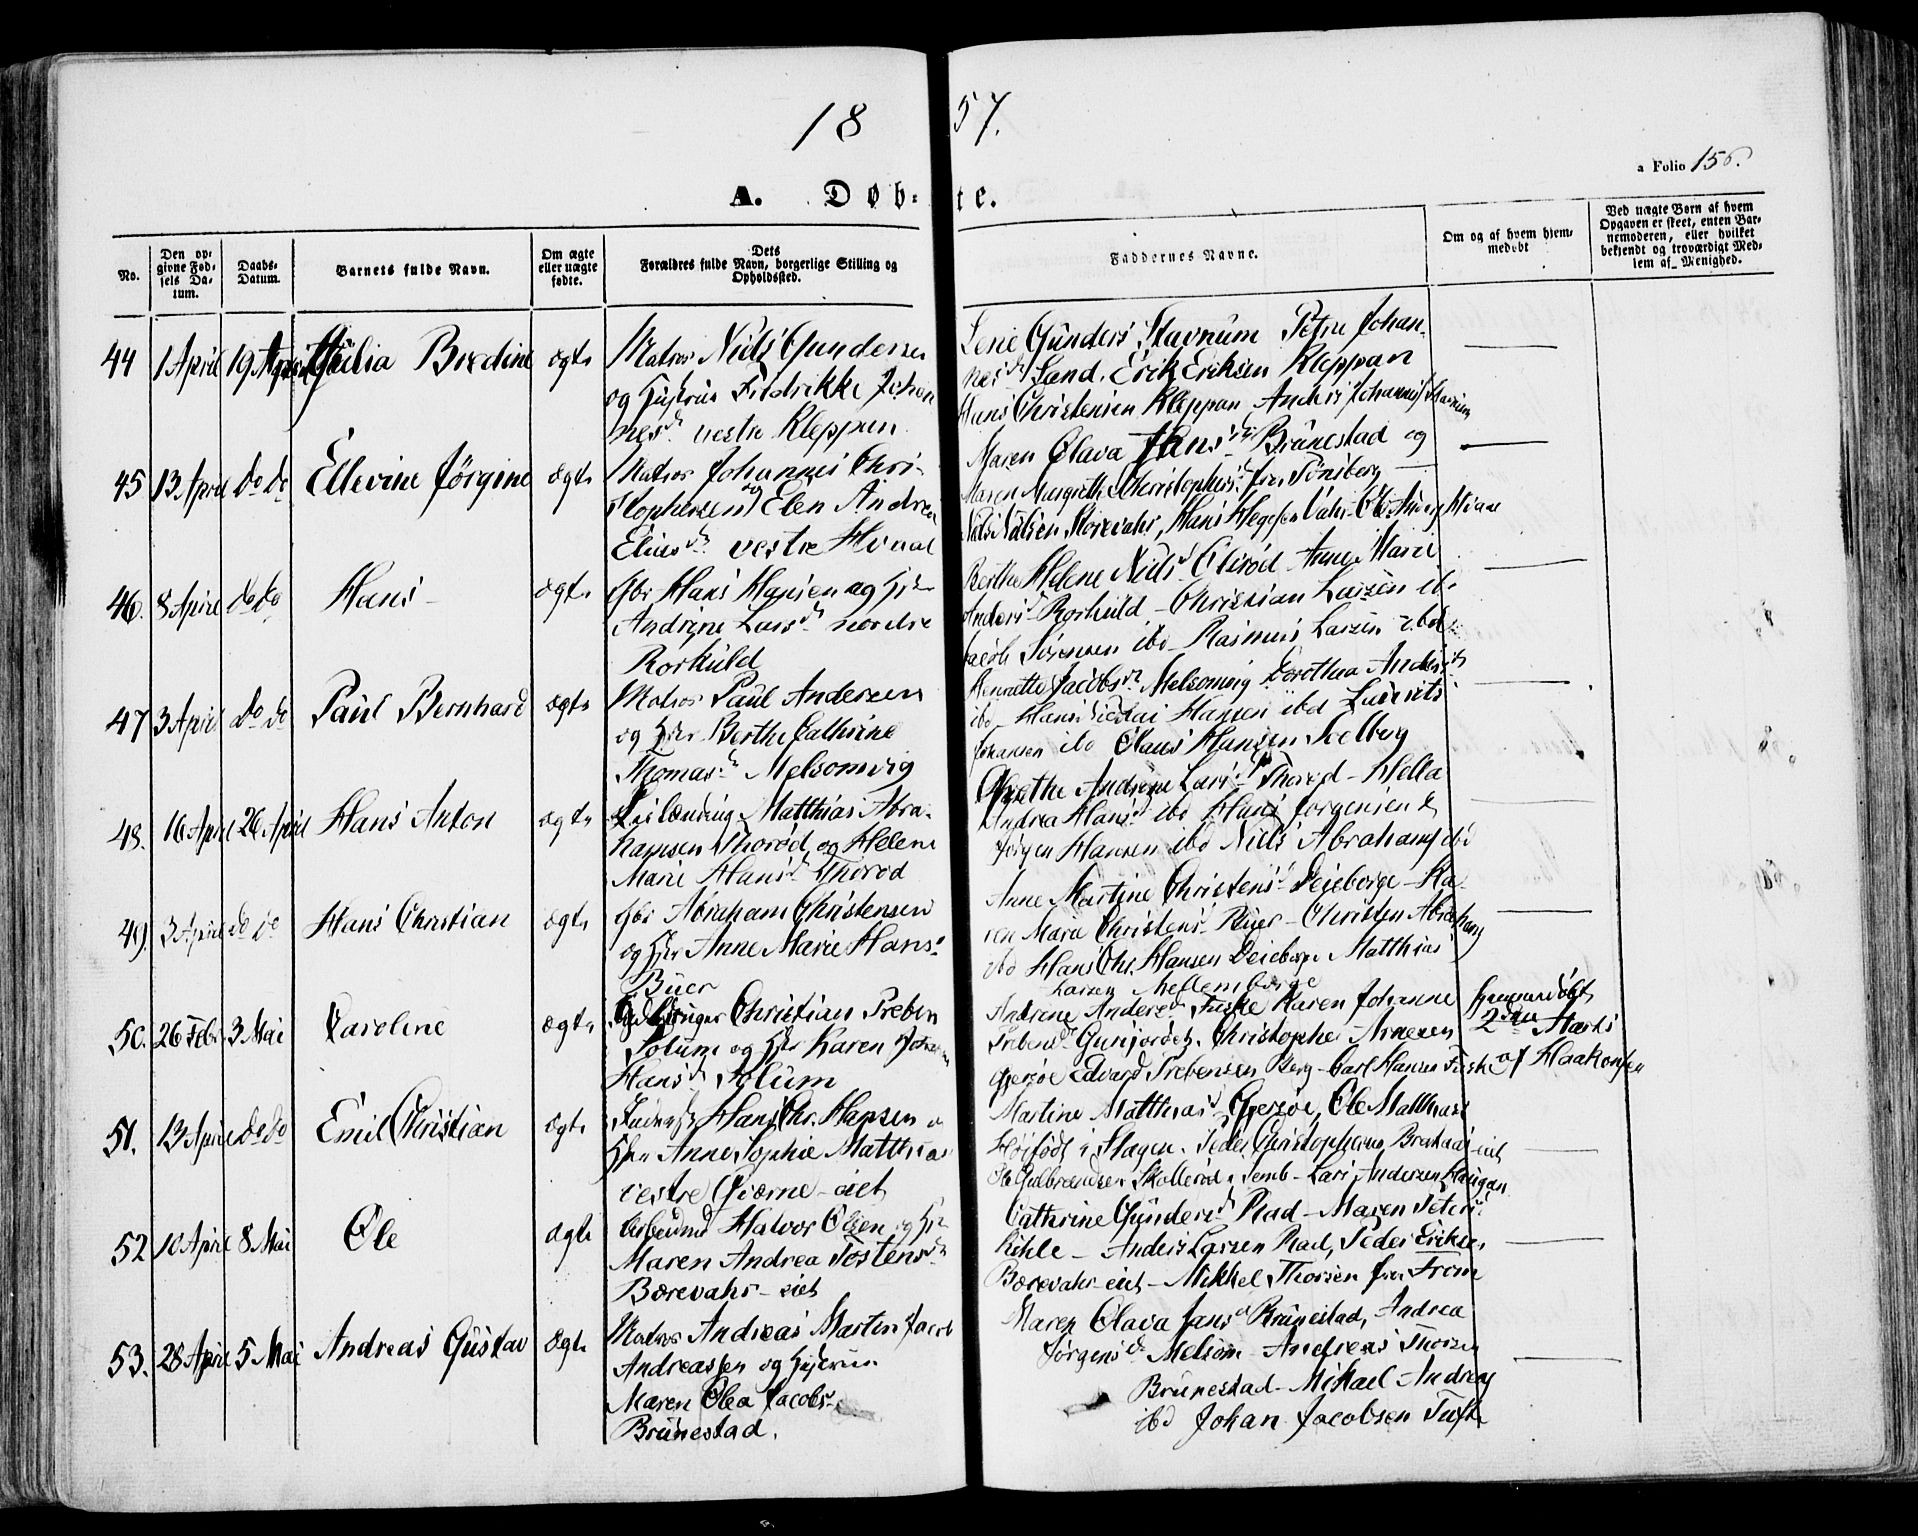 18 57.
a Folio 156.
A. Døb- te.
No.
Den op-
givne Fød-
sels Da-
tum.
Daabs-
Datum.
Barnets fulde Navn.
Om ægte
eller uægte
fødte.
Dets
Forældres fulde Navn, borgerlige Stilling og
Opholdssted.
Faddernes Navne.
Om og af hvem hjem-
medøbt
Ved uægte Børn af hvem
Opgaven er skeet, enten Bar-
nemoderen, eller hvilket
bekjendt og troværdigt Med-
lem af Menighed.
44 1 April 19 April Julia Bredine ægte
Matros Niels Gundersen
og Hustrue Fredrikke Johan
nesd. vestre Kleppan
Lene Gunders Stavnum Petra Johan-
nesd Sand. Erik Eriksen Kleppan
Hans Christensen Kleppan Anders Johannes Stavnum
45 13 April do do Ellevine Jørgine ægte
Matros Johannes Chri-
stophersen og Elen Andrea
Eliasd. vestre Hvaal
Maren Olava Jansd. Brunestad og
Maren Margrethe Christophersd. fra Tönsberg
Niels Nielsen Storevahr, Hans Vahr
46. 8 April do do Hans ægte
Gbr Hans Hansen og H
Andrine Larsd. nordre
Rorkuld
Berthe Helene Nielsd. Olsrød Anne Marie
Andersd Rorkuld - Christian Larsen ib
Jacob Sørensen ibd - Rasmus Larsen ibd
47 3 April do do Paul Bernhard ægte
Matros Paul Andersen
og H Berthe Cathrine
Thomasd. Melsomvig
Henriette Jacobsd. Melsomvig Dorothea Andersd
ibd - Hans Nicolai Hansen ibd Laurits
Johansen ibd Claus Hansen Solberg
48. 16 April 26 April Hans Anton ægte
Leilænding Matthias Abra-
hamsen Thorød og Helene
Marie Hansd. Thorød
Grethe Andrine Larsd. Thorød - Hella
Andrea Hansd ibd Hans Jørgensen
Jørgen Hansen ibd Niels Abrahams ibd
49. 3 April do do Hans Christian ægte
Gbr Abraham Christensen
og H Anne Marie Hans-
Buer
Anne Martine Christensd. Deieberge - Ka-
ren Marie Christensd. Buer - Christen Abrahams
ibd Hans Chr. Hansen Deieberge Matthias
Larsen Mellemborge
50. 26 Febr. 3 Mai Caroline ægte
Christian Preben
Solum og H Karen
Hansd. Solum
Andrine Andersd. Fuske Karen Johanne
Prebensd. Gunjordet. Christopher Arnesen
Gjersøe Edvard Prebensen Berg - Carl Hansen Fuske
hjemmedøbt
2den Marts
af Haakonsen
51. 13 April do do Emil Christian ægte
Hans Chr. Hansen
H Anne Sophie Matthias
vestre Gjærne - eiet
Martine Matthiasd. Gjersøe, Ole Matthias
Høifødt i Slagen. Peder Christophersen - eiet
Ole Gulbrandsen Skollerød i Semb - Lars Andersen Haugan
52 10 April 8 Mai Ole ægte
Arbeidsmd Halvor Olsen og H
Maren Andrea Tostensd.
Bærevahr - eiet
Cathrine Gundersd. Rød - Maren Peters
Kihle - Anders Larsen Rød, Peder Eriksen
Bærevahr - eiet - Mikkel Thorsen fra From
53. 28 April 5 Mai Andreas Gustav ægte
Matros Andreas Martin Jacob
Andreassen og Hustrue
Maren Olea Jacobs
Brunestad.
Maren Olava Jansd Brunestad, Andrea
Jørgensd. Melsom - Andreas Thorsen
Brunestad - Mikael Andreas
ibd Johan Jacobsen Tufte